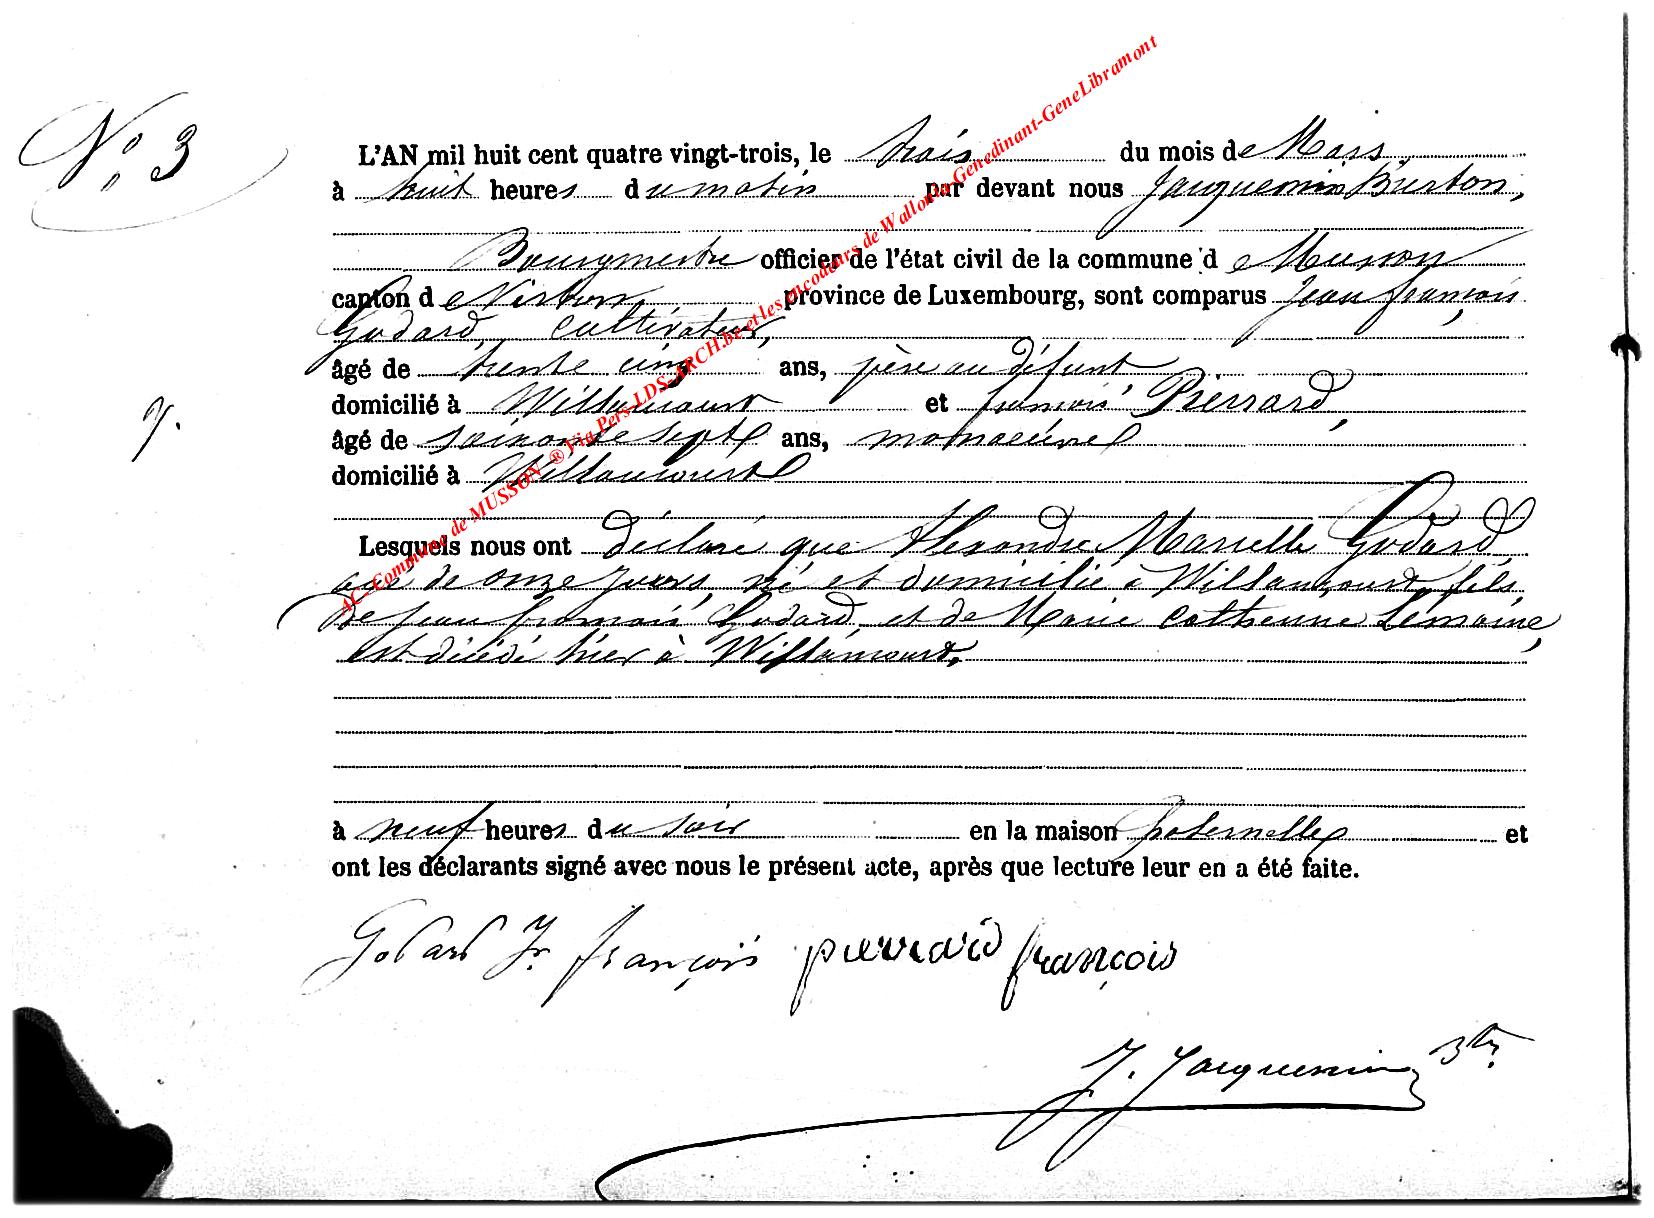 N° 3
L'AN mil huit cent quatre vingt-trois, le trois du mois de Mars
à huit heures du matin par devant nous Jacquemin Burton,
Bourgmestre officier de l'état civil de la commune de Musson
canton de Virton, province de Luxembourg, sont comparus Jean françois
Godard, cultivateur,
âgé de trente cinq ans, père au défunt
domicilié à Willancourt et françois Pierrard,
âgé de soixante sept ans, manoeuvre
domicilié à Willancourt
Lesquels nous ont déclaré que Alexandre Marcelle Godard,
agé de onze jours, né et domicilié à Willancourt, fils
de Jean françois Godard, et de Marie Catherine Lemoine,
est décédé hier à Willancourt.
à neuf heures du soir en la maison paternelle et
ont les déclarants signé avec nous le présent acte, après que lecture leur en a été faite.
Godard Jn françois pierrard françois
J. Jacquemin Btn
AC-Commune de MUSSON ® Via Pers-LDS-ARCH.be et les encodeurs de Wallonia-Genedinant-GeneLibramont